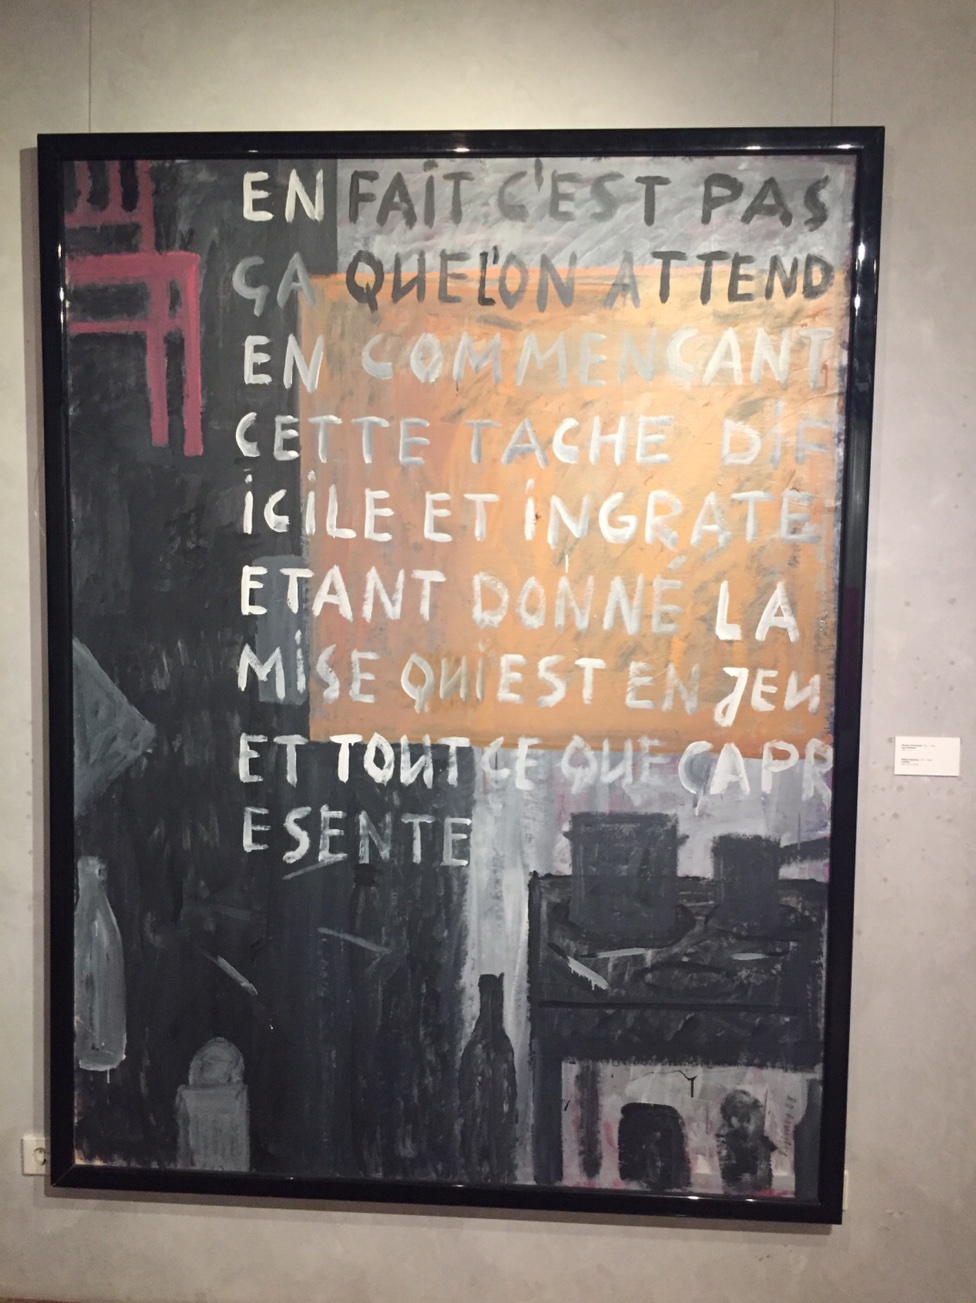 EN FAIT C'EST PAS
ÇA QUE L'ON ATTEND
EN COMMENÇANT
CETTE TACHE DIF
ICILE ET INGRATE
ETANT DONNÉ LA
MISE QUI EST EN JEU
ET TOUT CE QUE ÇA PR
ESENTE